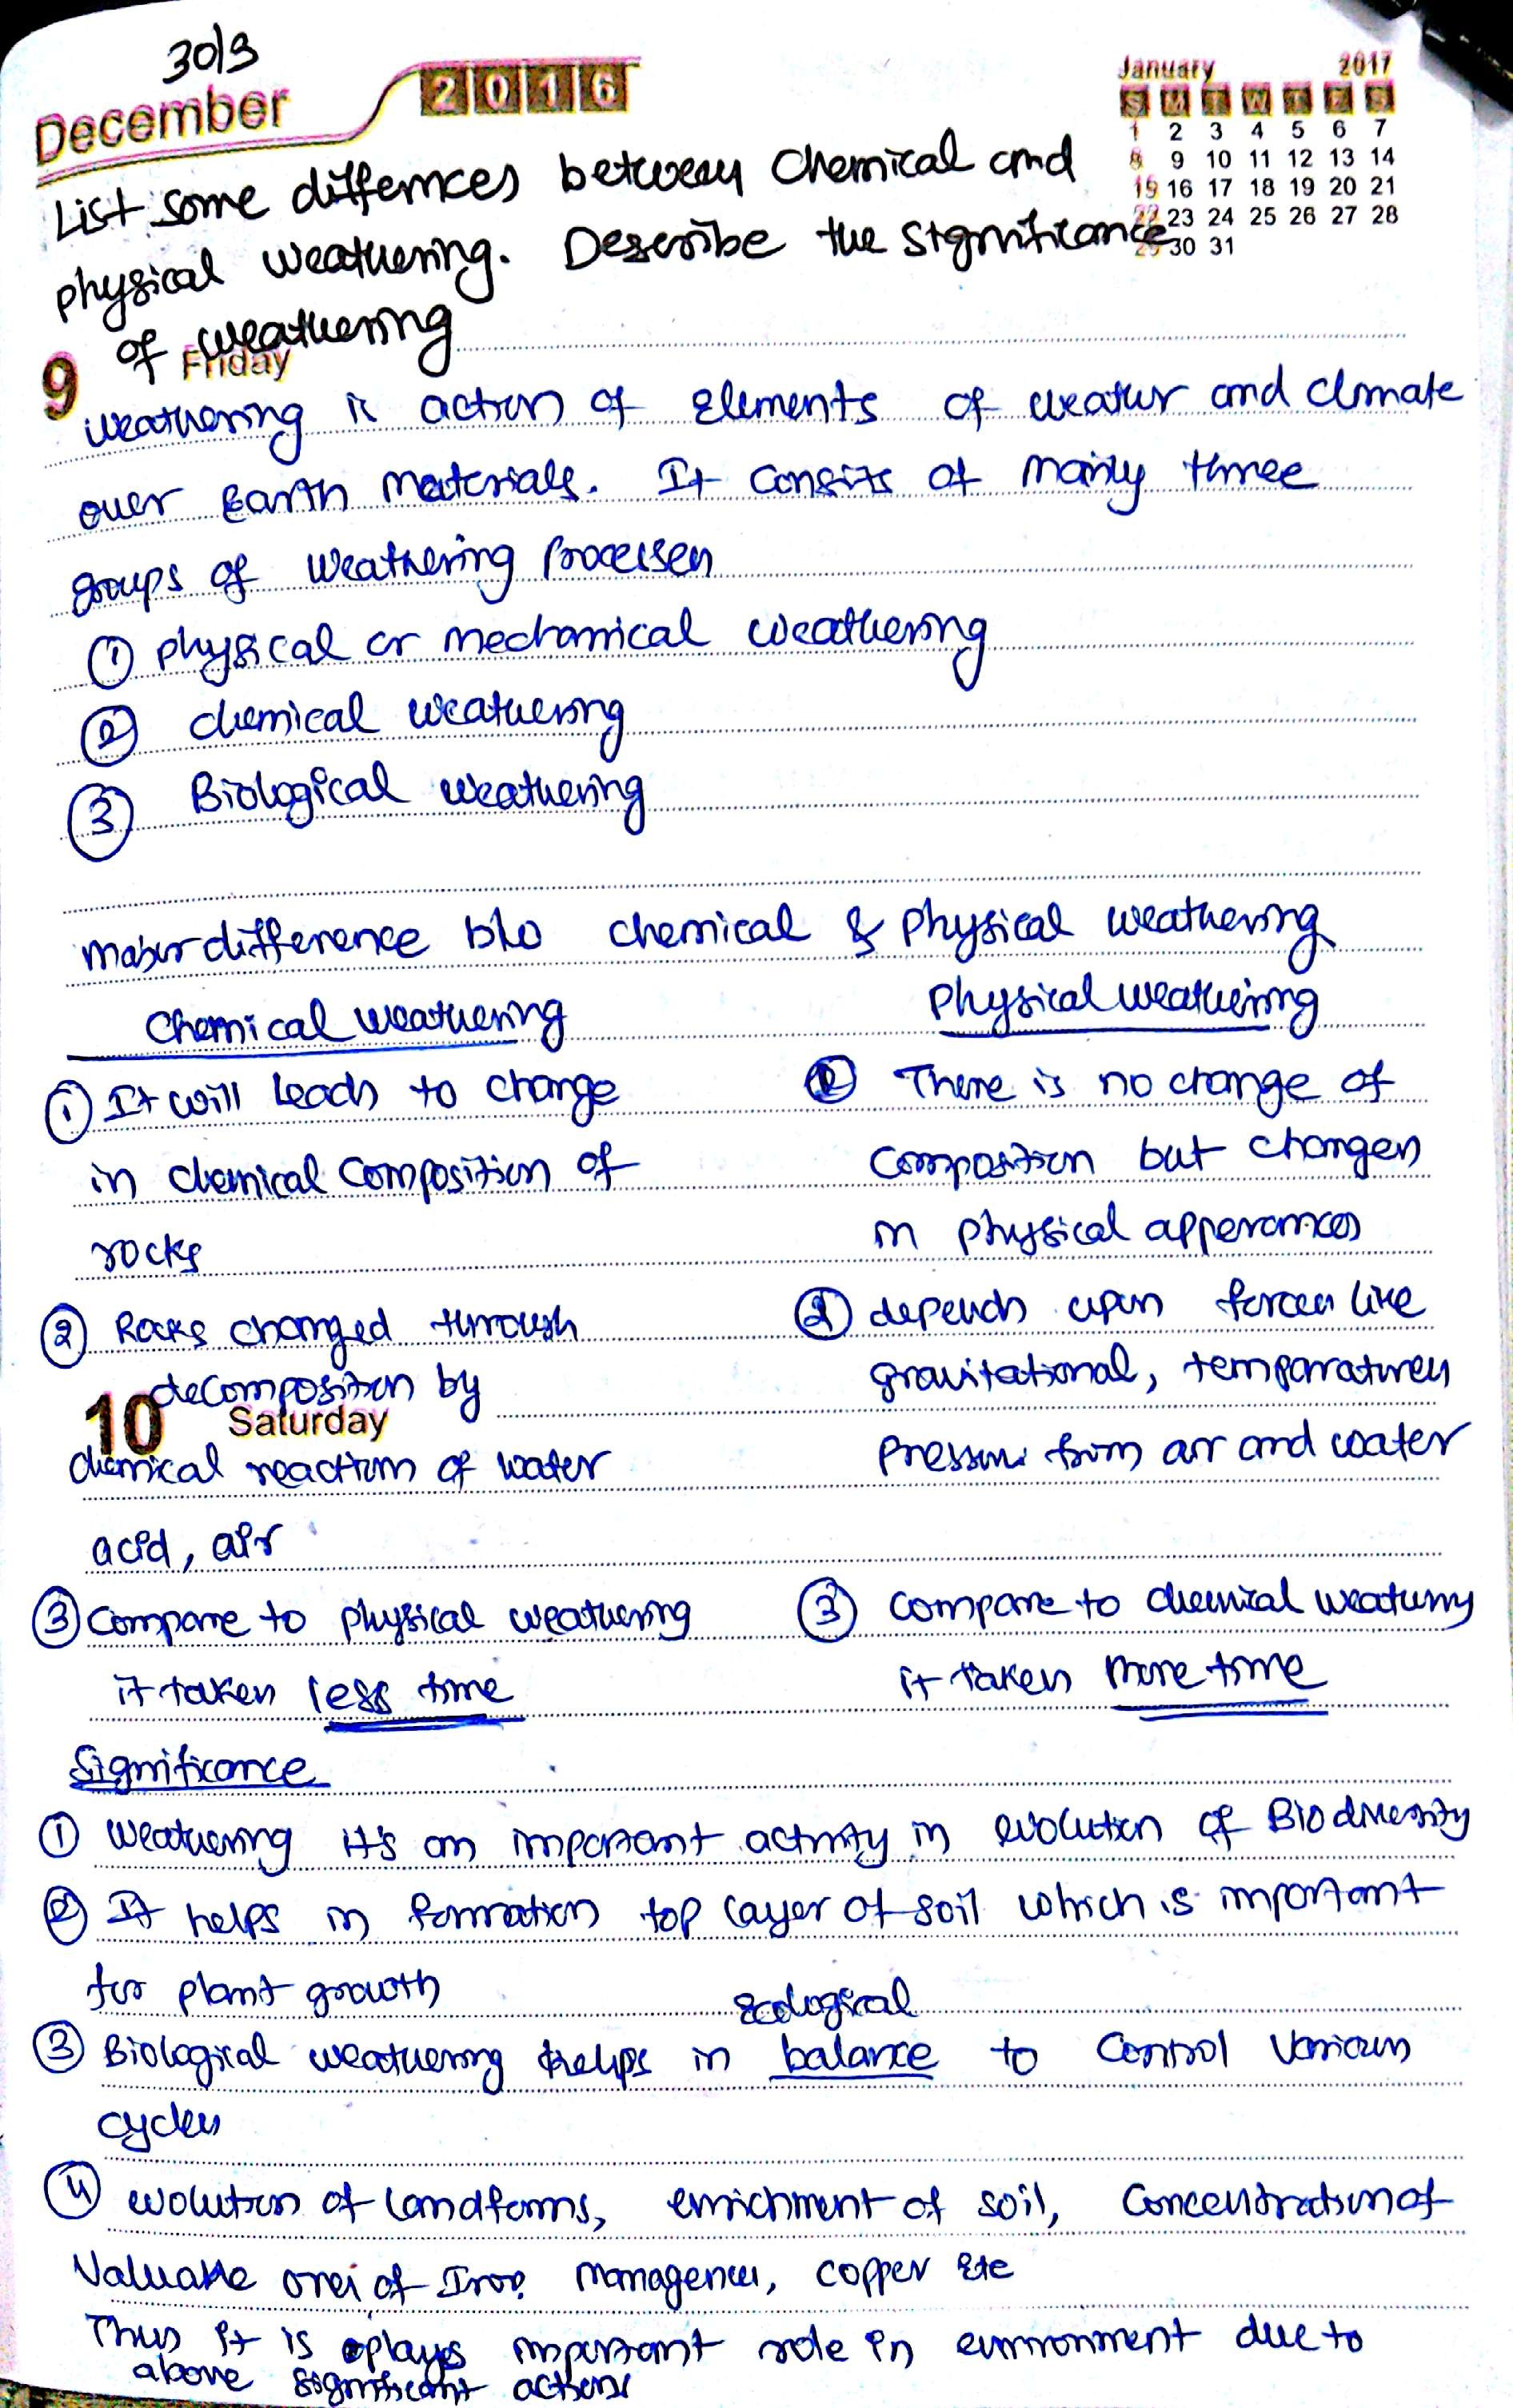 30/3
December 2016
January 2017
S M T W T F S
1 2 3 4 5 6 7
8 9 10 11 12 13 14
15 16 17 18 19 20 21
22 23 24 25 26 27 28
29 30 31
List some differnces between Chemical and
physical weathering. Describe the significance
of weathering
9 Friday
weathering is action of elements of weather and climate
over Earth materials. It consits of mainly three
groups of weathering processes
① physical or mechanical weathering
② chemical weathering
③ Biological weathering
major difference b/w chemical & physical weathering
Chemical weathering
Physical weathering
① It will leads to change
in chemical composition of
rocks
① There is no change of
composition but changes
in physical apperances
② Rocks changed through
decomposition by
10 Saturday
chemical reaction of water
acid, air
② depends upon forces like
gravitational, temparatures
pressure from air and water
③ Compare to physical weathering
it taken less time
③ compare to chemical weathering
it taken more time
Significance
① weathering it's an important activity in evolution of Biodiversity
② It helps in formation top layer of soil which is important
for plant growth
ecological
③ Biological weathering helps in balance to control various
cycles
④ evolution of landforms, enrichment of soil, concentration of
Valuable ores of Iron, managenes, copper ete
Thus it is plays important role in environment due to
above significant actions